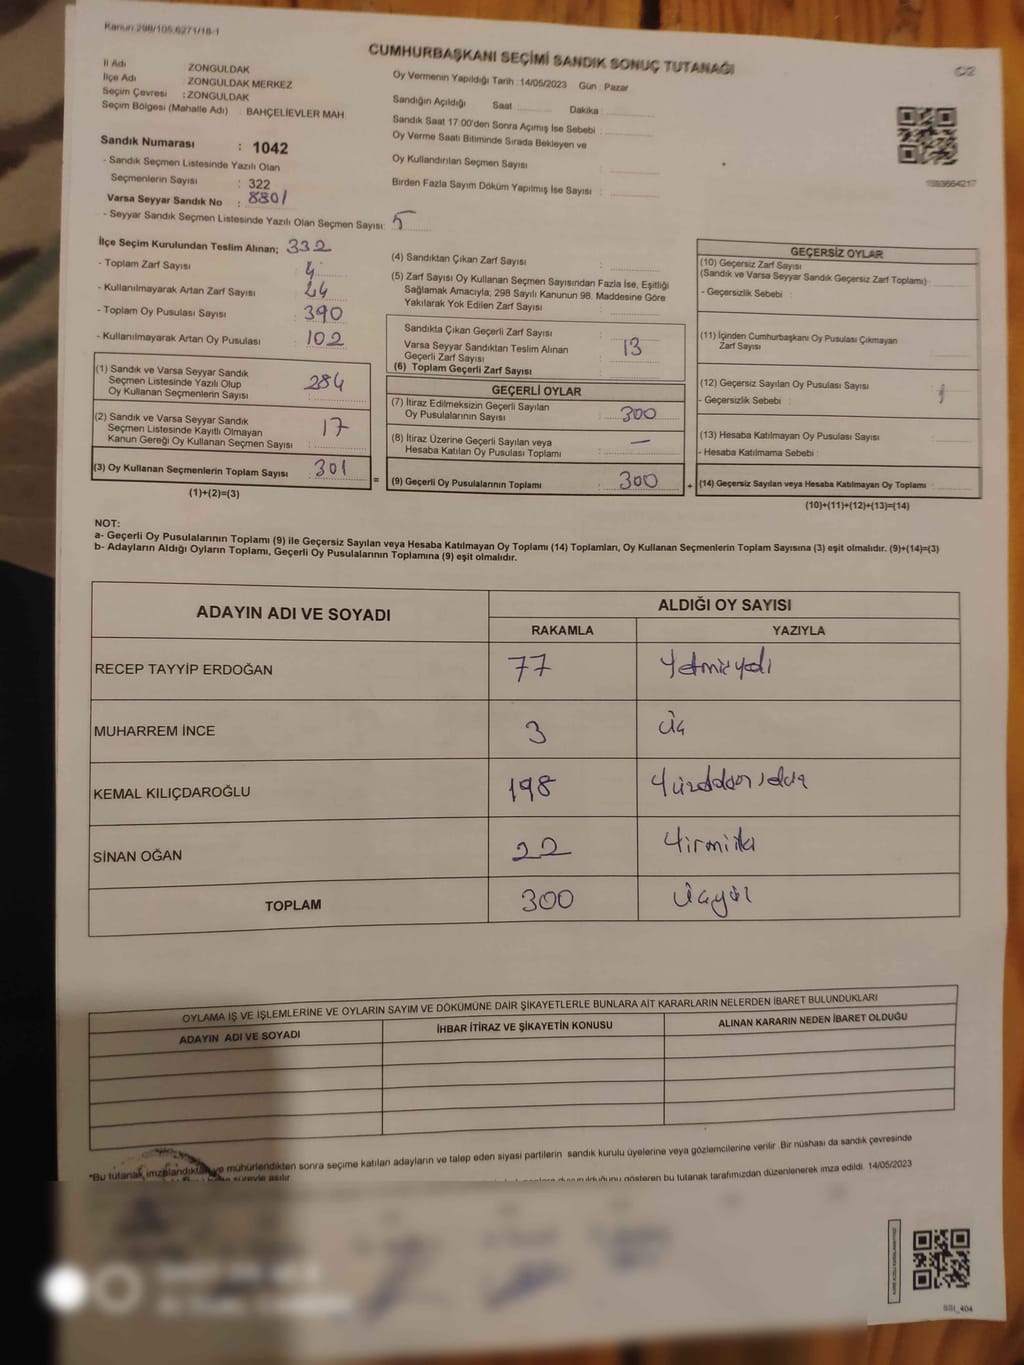 Kanun:298/105,6271/18-1
CUMHURBAŞKANI SEÇİMİ SANDIK SONUÇ TUTANAĞI
İl Adı : ZONGULDAK
İlçe Adı : ZONGULDAK MERKEZ
Seçim Çevresi : ZONGULDAK
Seçim Bölgesi (Mahalle Adı) : BAHÇELİEVLER MAH.
Oy Vermenin Yapıldığı Tarih : 14/05/2023 Gün : Pazar
Sandığın Açıldığı Saat Dakika
Sandık Saat 17:00'den Sonra Açımış İse Sebebi :
Oy Verme Saati Bitiminde Sırada Bekleyen ve
Oy Kullandırılan Seçmen Sayısı :
Birden Fazla Sayım Döküm Yapılmış İse Sayısı :
Sandık Numarası : 1042
- Sandık Seçmen Listesinde Yazılı Olan
Seçmenlerin Sayısı : 322
Varsa Seyyar Sandık No : 8801
- Seyyar Sandık Seçmen Listesinde Yazılı Olan Seçmen Sayısı: 5
İlçe Seçim Kurulundan Teslim Alınan; 332
- Toplam Zarf Sayısı
- Kullanılmayarak Artan Zarf Sayısı : 44
- Toplam Oy Pusulası Sayısı : 390
- Kullanılmayarak Artan Oy Pusulası : 102
(1) Sandık ve Varsa Seyyar Sandık
Seçmen Listesinde Yazılı Olup
Oy Kullanan Seçmenlerin Sayısı : 284
(2) Sandık ve Varsa Seyyar Sandık
Seçmen Listesinde Kayıtlı Olmayan
Kanun Gereği Oy Kullanan Seçmen Sayısı : 17
(3) Oy Kullanan Seçmenlerin Toplam Sayısı : 301
(1)+(2)=(3)
=
(4) Sandıktan Çıkan Zarf Sayısı :
(5) Zarf Sayısı Oy Kullanan Seçmen Sayısından Fazla İse, Eşitliği
Sağlamak Amacıyla; 298 Sayılı Kanunun 98. Maddesine Göre
Yakılarak Yok Edilen Zarf Sayısı :
Sandıkta Çıkan Geçerli Zarf Sayısı :
Varsa Seyyar Sandıktan Teslim Alınan
Geçerli Zarf Sayısı : 13
(6) Toplam Geçerli Zarf Sayısı :
GEÇERLİ OYLAR
(7) İtiraz Edilmeksizin Geçerli Sayılan
Oy Pusulalarının Sayısı : 300
(8) İtiraz Üzerine Geçerli Sayılan veya
Hesaba Katılan Oy Pusulası Toplamı : —
(9) Geçerli Oy Pusulalarının Toplamı : 300
+
GEÇERSİZ OYLAR
(10) Geçersiz Zarf Sayısı
(Sandık ve Varsa Seyyar Sandık Geçersiz Zarf Toplamı) :
- Geçersizlik Sebebi :
(11) İçinden Cumhurbaşkanı Oy Pusulası Çıkmayan
Zarf Sayısı :
(12) Geçersiz Sayılan Oy Pusulası Sayısı :
- Geçersizlik Sebebi :
(13) Hesaba Katılmayan Oy Pusulası Sayısı :
- Hesaba Katılmama Sebebi :
(14) Geçersiz Sayılan veya Hesaba Katılmayan Oy Toplamı :
(10)+(11)+(12)+(13)=(14)
NOT:
a- Geçerli Oy Pusulalarının Toplamı (9) ile Geçersiz Sayılan veya Hesaba Katılmayan Oy Toplamı (14) Toplamları, Oy Kullanan Seçmenlerin Toplam Sayısına (3) eşit olmalıdır. (9)+(14)=(3)
b- Adayların Aldığı Oyların Toplamı, Geçerli Oy Pusulalarının Toplamına (9) eşit olmalıdır.
ADAYIN ADI VE SOYADI ALDIĞI OY SAYISI
RAKAMLA YAZIYLA
RECEP TAYYİP ERDOĞAN 77 Yetmişyedi
MUHARREM İNCE 3 Üç
KEMAL KILIÇDAROĞLU 198
SİNAN OĞAN 22 Yirmiiki
TOPLAM 300 Üçyüz
OYLAMA İŞ VE İŞLEMLERİNE VE OYLARIN SAYIM VE DÖKÜMÜNE DAİR ŞİKAYETLERLE BUNLARA AİT KARARLARIN NELERDEN İBARET BULUNDUKLARI
ADAYIN ADI VE SOYADI İHBAR İTİRAZ VE ŞİKAYETİN KONUSU ALINAN KARARIN NEDEN İBARET OLDUĞU
*Bu tutanak imzalandıktan ve mühürlendikten sonra seçime katılan adayların ve talep eden siyasi partilerin sandık kurulu üyelerine veya gözlemcilerine verilir .Bir nüshası da sandık çevresinde
süreyle asılır. duyurulduğunu gösteren bu tutanak tarafımızdan düzenlenerek imza edildi. 14/05/2023